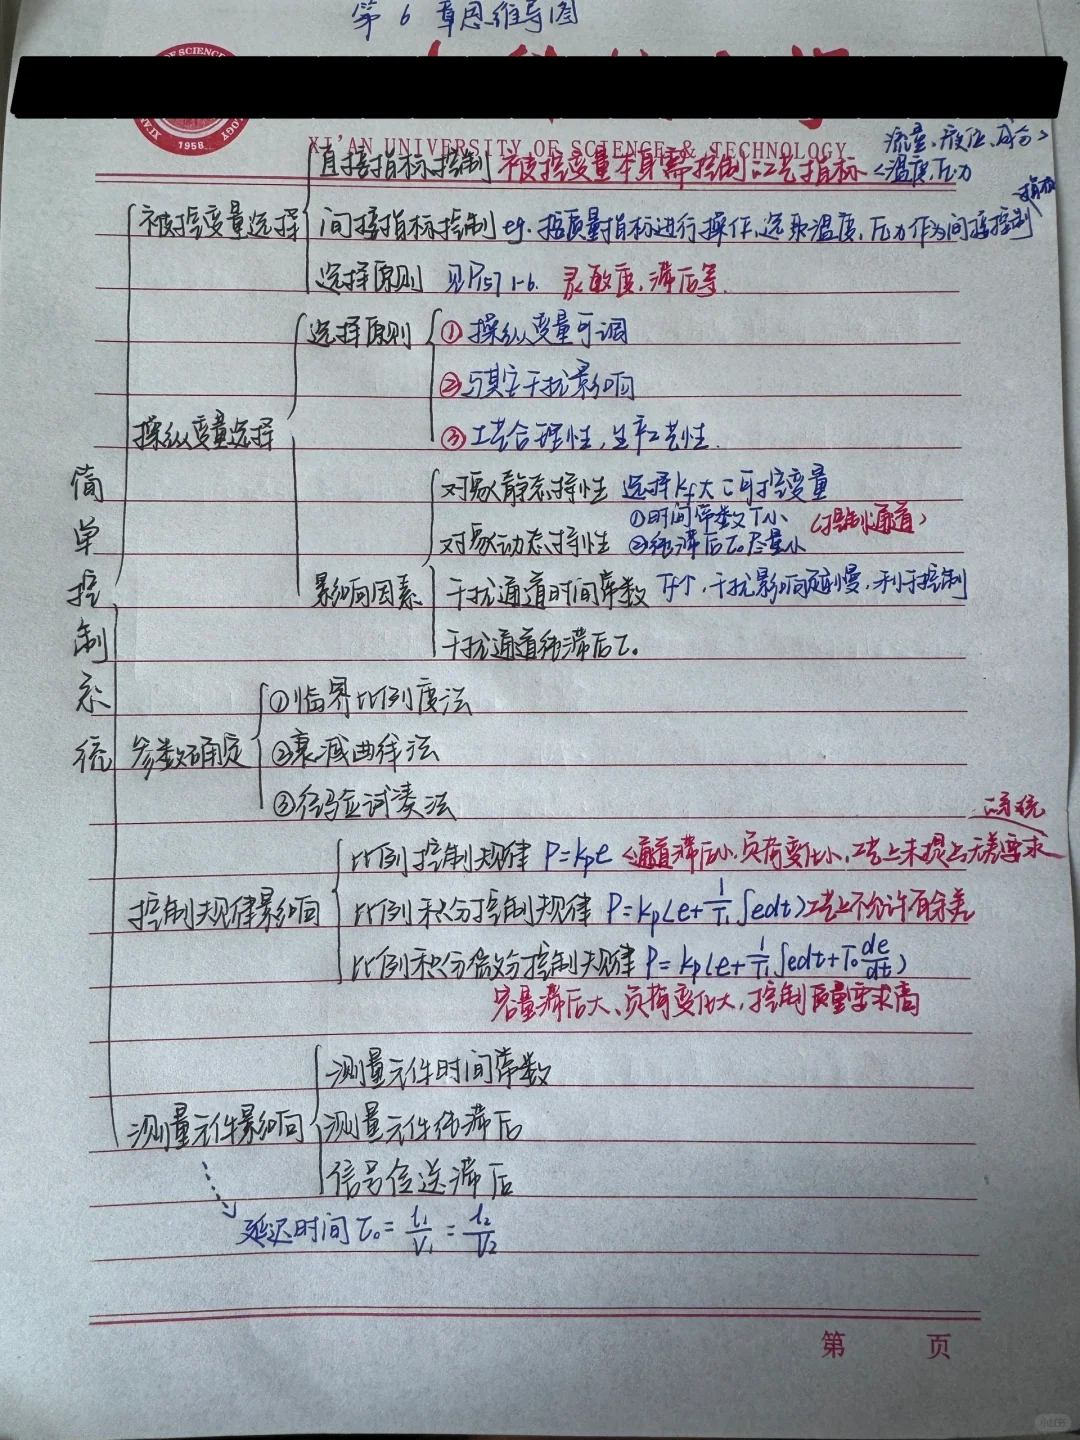 第6章思维导图
OF SCIENCE
XI'AN
OLOGY
1958
XI'AN UNIVERSITY OF SCIENCE & TECHNOLOGY
流量、液位、成分>
直接指标控制 被控变量本身需控制 工艺指标 <温度,压力
指标
被控变量选择 间接指标控制 eg. 按质量指标进行操作,选取温度,压力作为间接控制
选择原则 见P157 1-6. 灵敏度,滞后等.
选择原则 ①操纵变量可调
②与其它干扰影响
操纵变量选择 ③工艺合理性,生产工艺性.
对象静态特性 选择Kf大 可控变量
①时间常数T小 (控制通道)
对象动态特性 ②纯滞后τ₀尽量小
影响因素 干扰通道时间常数 Tf个,干扰影响越慢,利于控制
干扰通道纯滞后τ₀
简单控制系统
①临界比例度法
参数确定 ②衰减曲线法
③经验试凑法
的系统
比例控制规律 P=kpe <通道滞后小,负荷变化小,工艺上未提出无差要求
控制规律影响 比例积分控制规律 P=kp(e+1/T₁∫edt)工艺上不允许有余差
比例积分微分控制规律 P=kp(e+1/T₁∫edt+T₀de/dt)
容量滞后大、负荷变化大,控制质量要求高
测量元件时间常数
测量元件影响 测量元件纯滞后
信号传送滞后
延迟时间τ₀=l₁/V₁=l₂/V₂
第 页
小红书